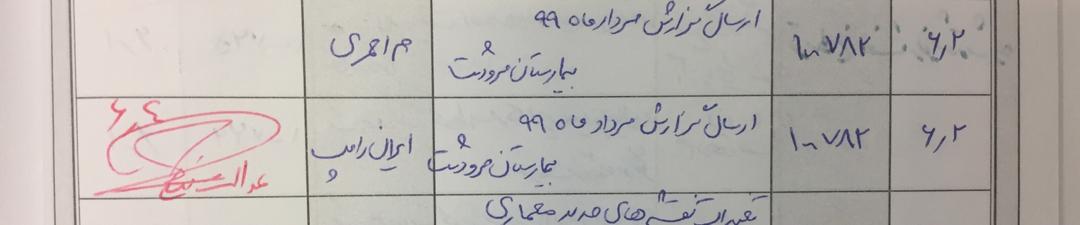 ۶٫۲
۱۰۰۷۸۲
ارسال گزارش مرداد ماه ۹۹
بیمارستان مرودشت
م احمدی
۶٫۲
۱۰۰۷۸۲
ارسال گزارش مرداد ماه ۹۹
بیمارستان مرودشت
ایران
۶٫۴
تغییرات نقشه های جدید معماری